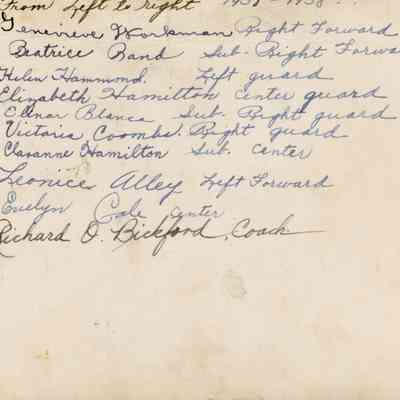 From Left to right 1937-1938
Genevieve Workman Right Forward
Beatrice Band Sub. Right Forwa
Helen Hammond. Left guard
Elizabeth Hamilton center guard
Elenor Blanca Sub. Right guard
Victoria Coombs. Right guard
Claranne Hamilton Sub. center
Leonice Alley Left Forward
Evelyn Cole center
Richard O. Bickford, Coach